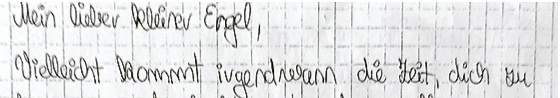 Mein lieber kleiner Engel,
Vielleicht kommt irgendwann die Zeit, dich zu